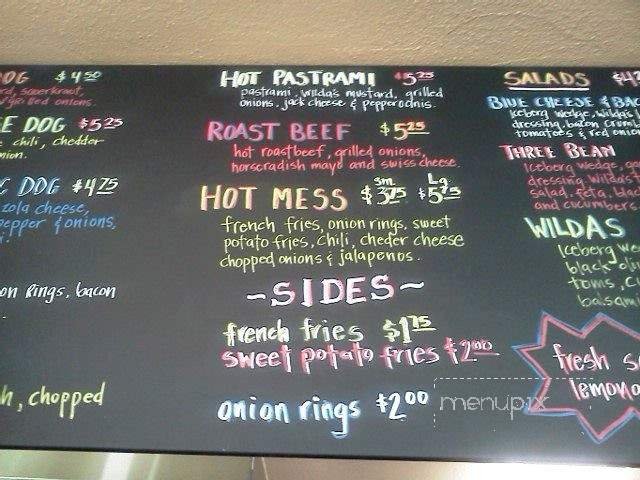 DOG $4.50
sauerkraut,
grilled onions.
E DOG $5.25
chili, chedder
onion.
DOG $4.75
zola cheese,
pepper & onions,
on Rings, bacon
h, chopped
HOT PASTRAMI $5.25
pastrami, wilda's mustard, grilled
onions, jack cheese & pepperocinis.
ROAST BEEF $5.25
hot roastbeef, grilled onions,
horseradish mayo and swiss cheese.
HOT MESS sm $3.75 Lg $5.75
french fries, onion rings, sweet
potato fries, chili, cheder cheese
chopped onions & jalapenos.
~SIDES~
french fries $1.75
sweet potato fries $2.00
onion rings $2.00
SALADS
BLUE CHEESE & BA
Iceberg wedge, wilda's
dressing, bacon crumb
tomatoes & red onio
THREE BEAN
Iceberg wedge,
dressing, wilda's
salad, feta,
and cucumbers
WILDAS
Iceberg we
black oliv
toms, cu
balsam
fresh s
lemona
menupix